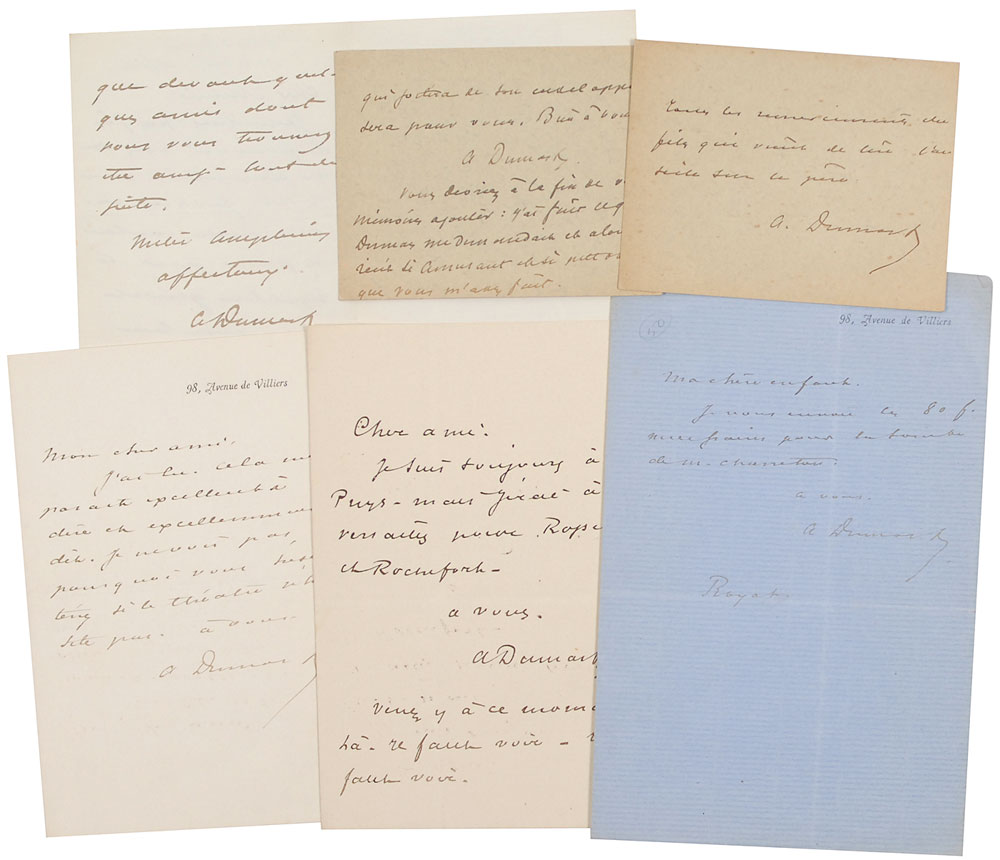 que devant quel-
ques amis dont
vous vous
être
Mille
affectueux.
A Dumas f
de son
sera pour vous. Bien à vou
A Dumas f.
Vous devriez à la fin de v
mémoires ajouter : j'ai fait ce q
Dumas me demandait et alor
récit si amusant et si
que vous m'avez fait.
Tous les remerciements du
fils qui vient de lire l'
sur le père
A. Dumas f
98, Avenue de Villiers
Mon cher ami,
J'ai lu. cela me
parait excellent à
dire et excellemment
dit. Je ne vois pas
pourquoi vous
si le théâtre
pas. à vous.
A Dumas f
Cher ami.
Je suis toujours à
Puys - mais j'irai à
Versailles pour
et Rochefort -
a vous.
A Dumas f
Venez y à ce mom
là - il faut voir -
faut voir.
98, Avenue de Villiers
Ma chère enfant.
Je vous envoie les 80 f.
pour la tombe
de M.
a vous.
A Dumas f.
Royat